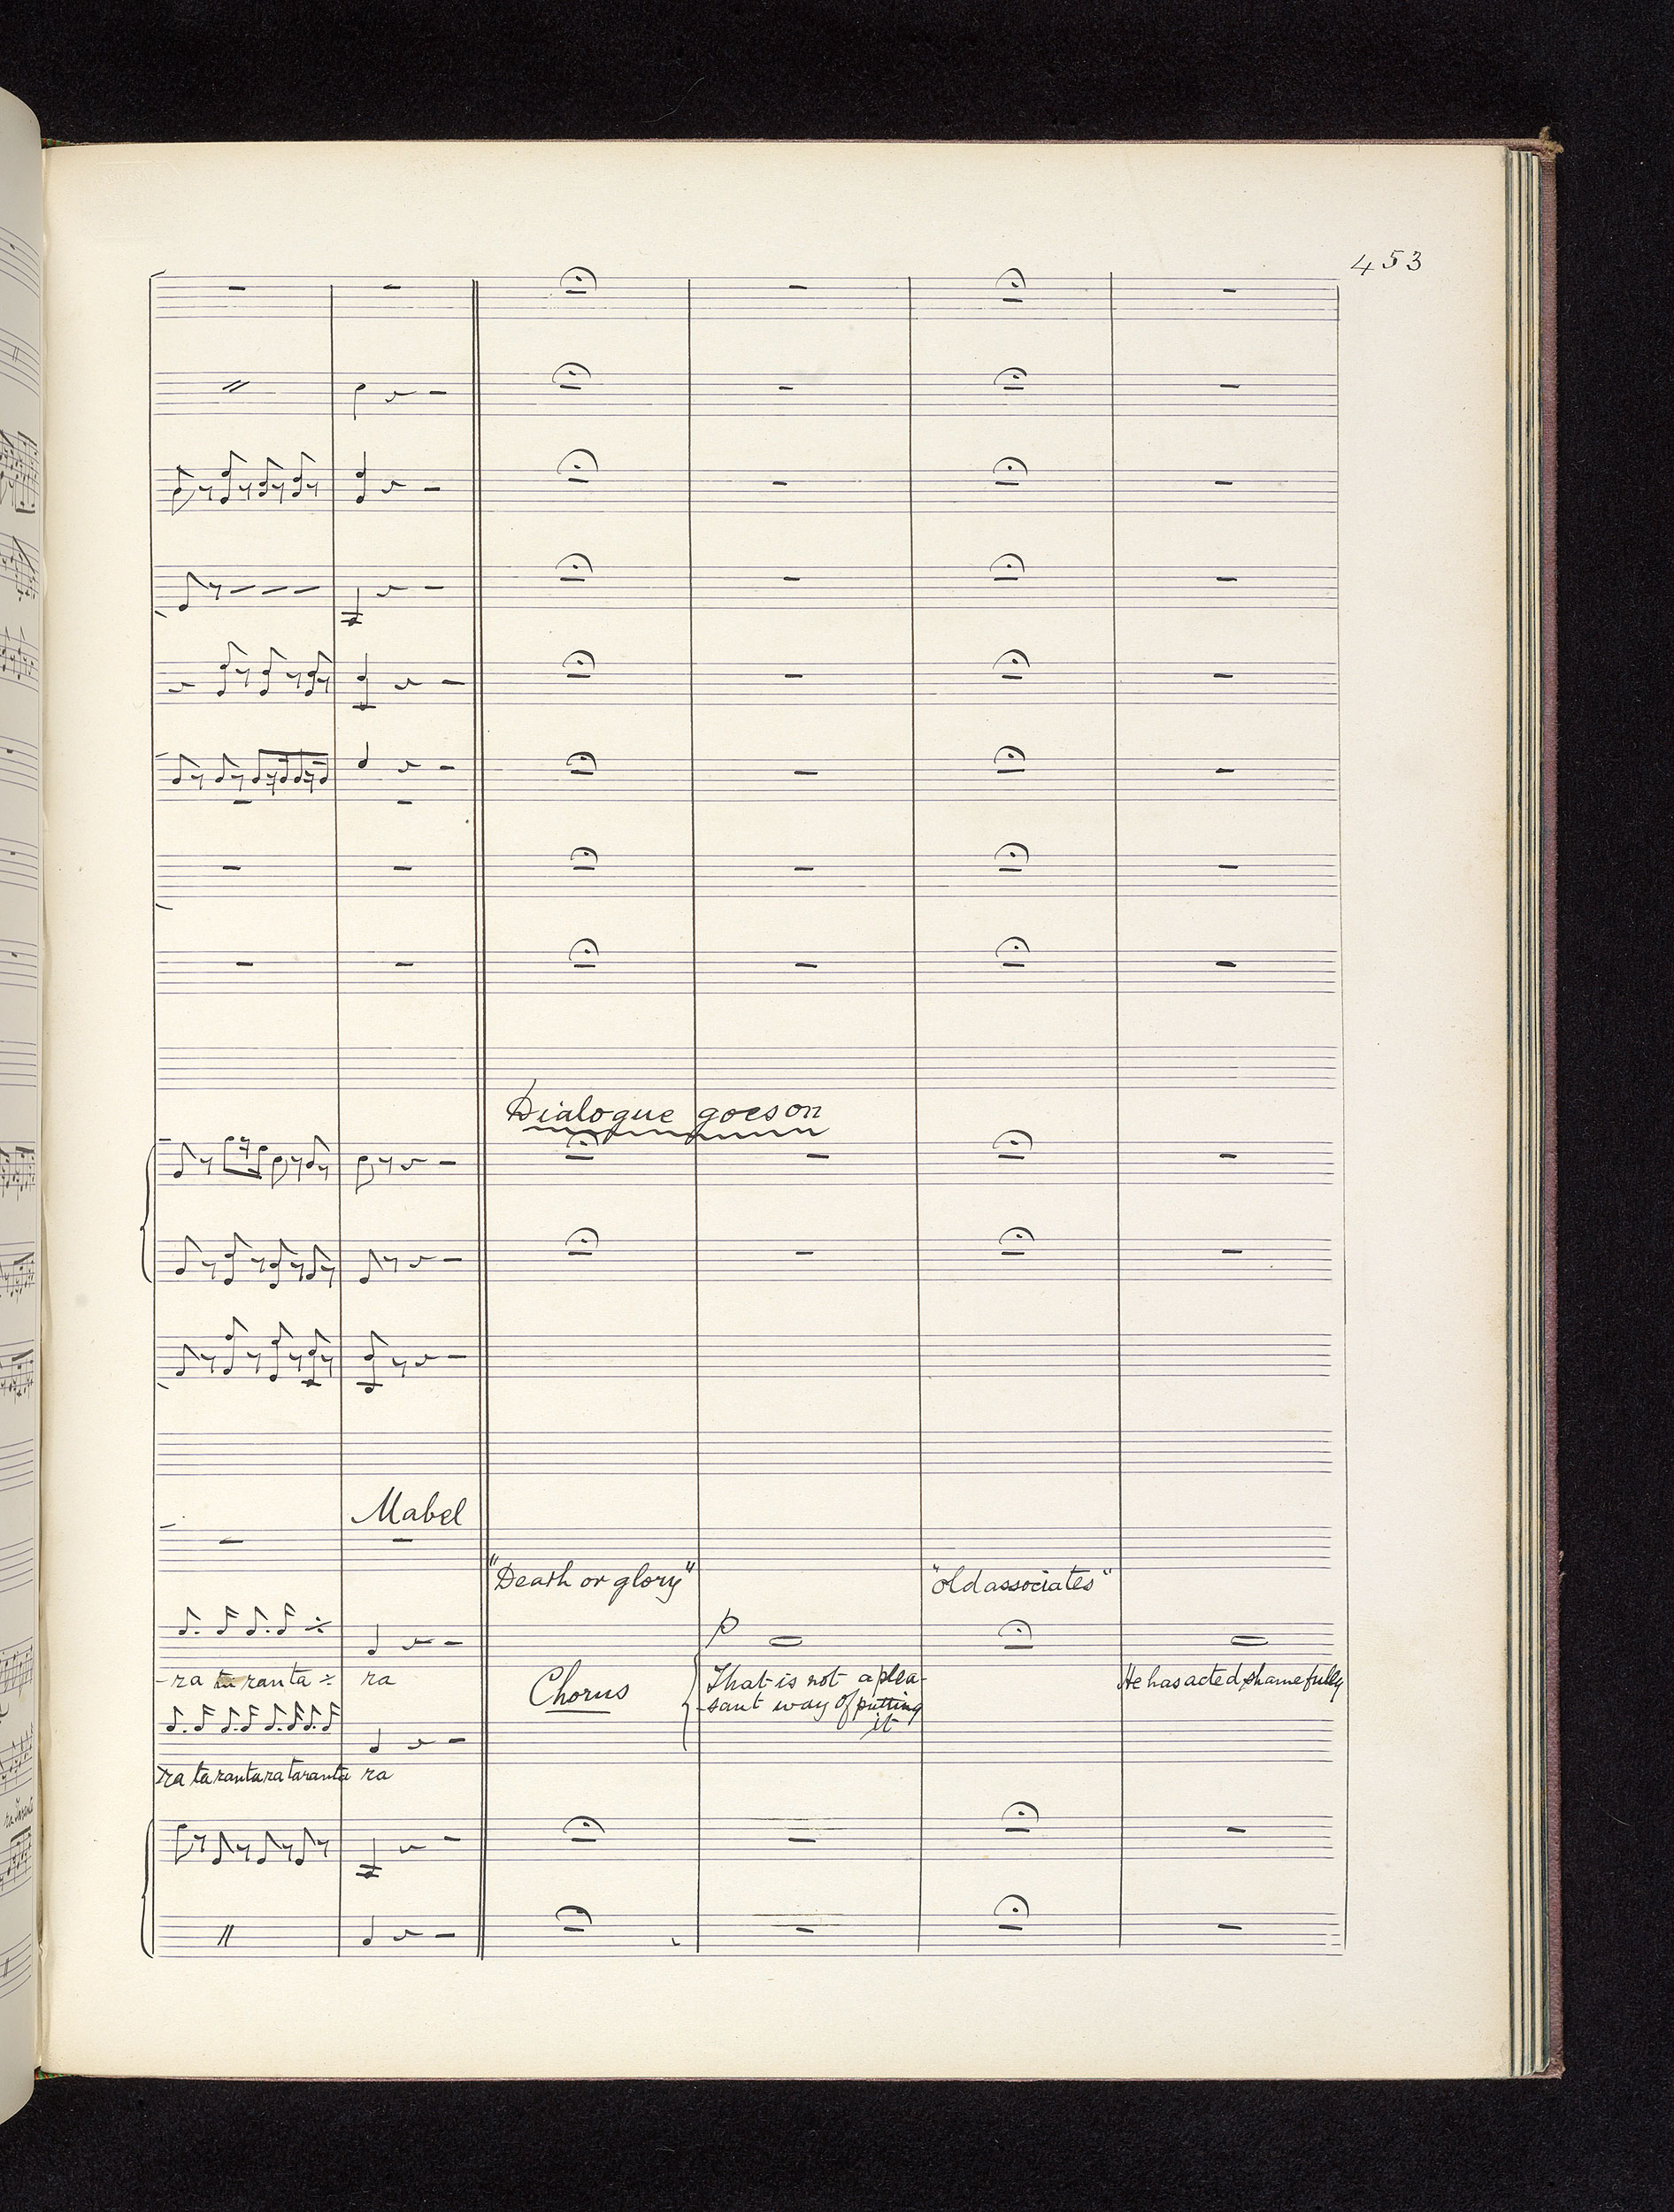 453
Dialogue goes on
Mabel
"Death or glory"
"old associates"
p
-ra ta ranta ÷ ra
Chorus
That is not a plea-
sant way of putting
it
He has acted shamefully
ra ta ranta ra taranta ra